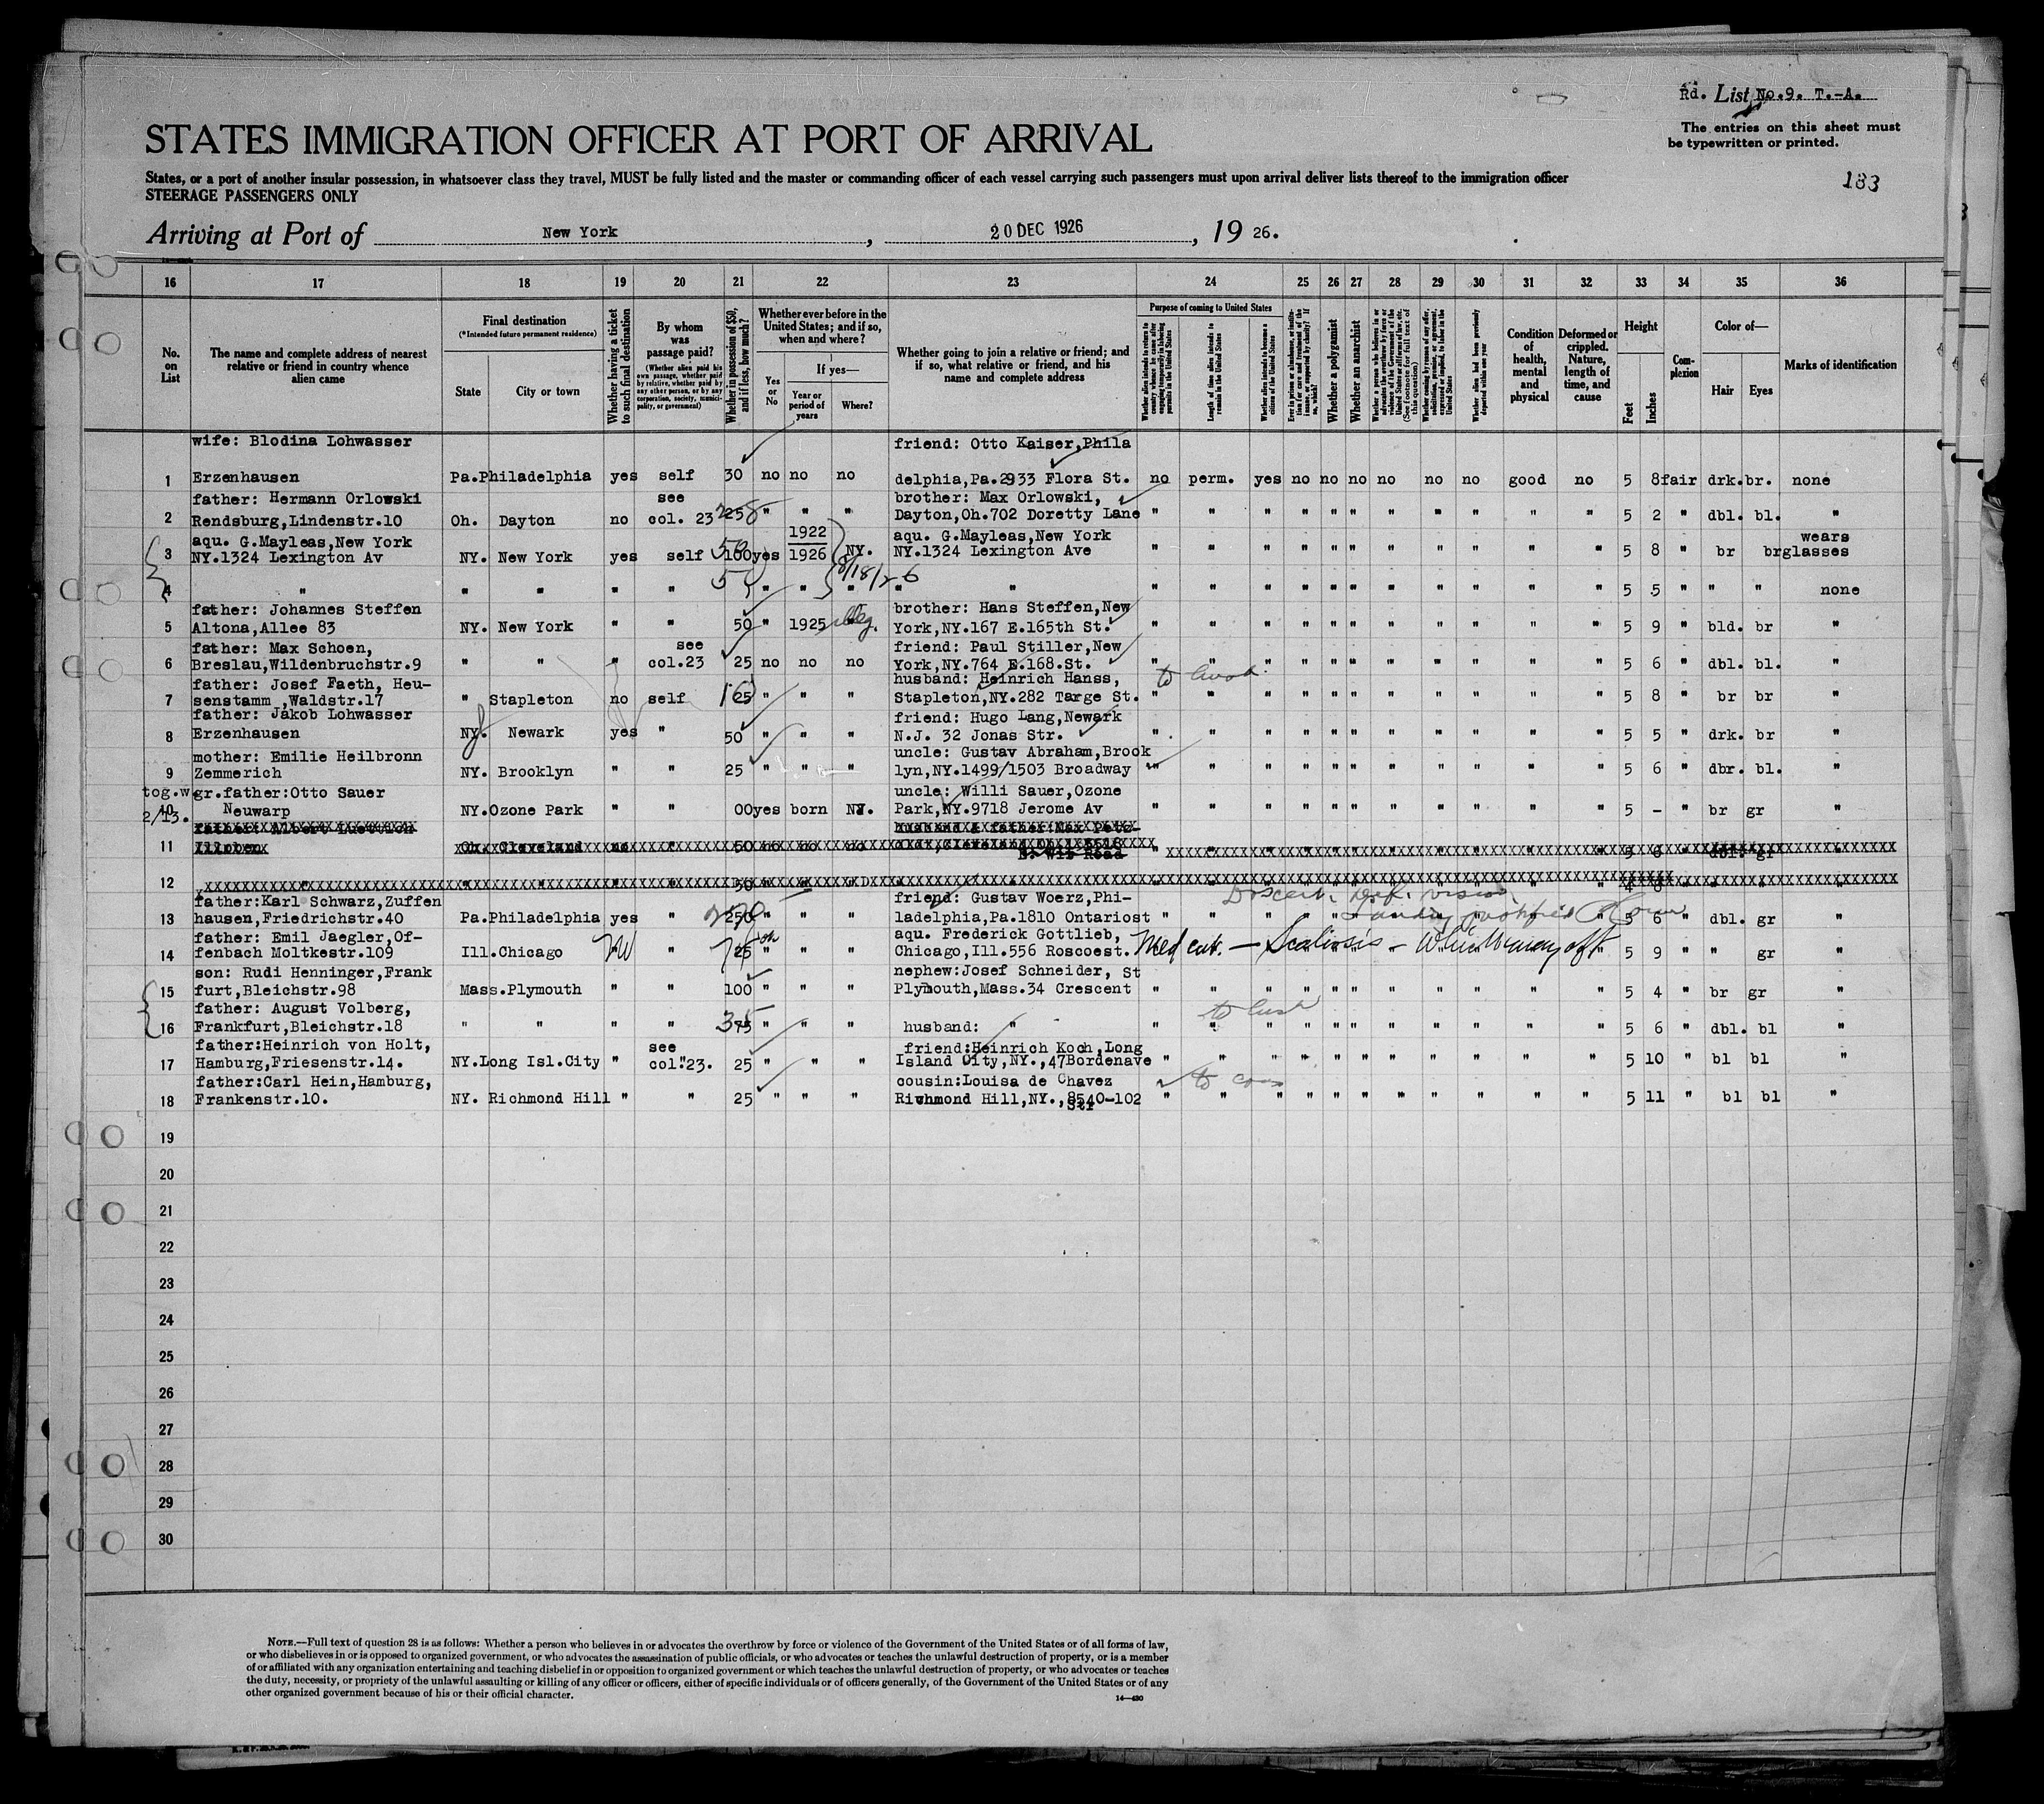 Rd. List No.9. T.-A.
The entries on this sheet must
be typewritten or printed.
183
STATES IMMIGRATION OFFICER AT PORT OF ARRIVAL
States, or a port of another insular possession, in whatsoever class they travel, MUST be fully listed and the master or commanding officer of each vessel carrying such passengers must upon arrival deliver lists thereof to the immigration officer
STEERAGE PASSENGERS ONLY
Arriving at Port of New York, 20 DEC 1926, 19 26.
16 17 18 19 20 21 22 23 24 25 26 27 28 29 30 31 32 33 34 35 36
No. on List
The name and complete address of nearest relative or friend in country whence alien came
Final destination
(*Intended future permanent residence)
State
City or town
Whether having a ticket to such final destination
By whom was passage paid?
(Whether alien paid his own passage, whether paid by relative, whether paid by any other person, or by any corporation, society, municipality, or government)
Whether in possession of $50, and if less, how much?
Whether ever before in the United States; and if so, when and where?
Yes or No
If yes—
Year or period of years
Where?
Whether going to join a relative or friend; and if so, what relative or friend, and his name and complete address
Purpose of coming to United States
Whether alien intends to return to country whence he came after engaging temporarily in laboring pursuits in the United States
Length of time alien intends to remain in the United States
Whether alien intends to become a citizen of the United States
Ever in prison or almshouse, or institution for care and treatment of the insane, or supported by charity? If so, which?
Whether a polygamist
Whether an anarchist
Whether a person who believes in or advocates the overthrow by force or violence of the Government of the United States or all forms of law, etc. (See footnote for full text of this question)
Whether coming by reason of any offer, solicitation, promise, or agreement, expressed or implied, to labor in the United States
Whether alien had been previously deported within one year
Condition of health, mental and physical
Deformed or crippled. Nature, length of time, and cause
Height
Feet
Inches
Complexion
Color of—
Hair
Eyes
Marks of identification
wife: Blodina Lohwasser friend: Otto Kaiser,Phila
1 Erzenhausen Pa.Philadelphia yes self 30 no no no delphia,Pa.2933 Flora St. no perm. yes no no no no no no good no 5 8 fair drk. br. none
father: Hermann Orlowski see brother: Max Orlowski,
2 Rendsburg,Lindenstr.10 Oh. Dayton no col. 23 25 " " " Dayton,Oh.702 Doretty Lane " " " " " " " " " " " 5 2 " dbl. bl. "
aqu. G.Mayleas,New York 1922 aqu. G.Mayleas,New York wears
3 NY.1324 Lexington Av NY. New York yes self 100 yes 1926 NY. NY.1324 Lexington Ave " " " " " " " " " " " 5 8 " br br glasses
50
8/18/26
4 " " " " " " " " " " " " " " " " " " " " " 5 5 " " " none
father: Johannes Steffen brother: Hans Steffen,New
5 Altona,Allee 83 NY. New York " " 50 " 1925 York,NY.167 E.165th St. " " " " " " " " " " " 5 9 " bld. br "
father: Max Schoen, see friend: Paul Stiller,New
6 Breslau,Wildenbruchstr.9 " " " col.23 25 no no no York,NY.764 E.168.St. " " " " " " " " " " " 5 6 " dbl. bl. "
father: Josef Faeth, Heu- husband: Heinrich Hanss,
7 senstamm ,Waldstr.17 " Stapleton no self 25 " " " Stapleton,NY.282 Targe St. " " " " " " " " " " 5 8 " br br "
father: Jakob Lohwasser friend: Hugo Lang,Newark
8 Erzenhausen NY. Newark yes " 50 " " " N.J. 32 Jonas Str. " " " " " " " " " " " 5 5 " drk. br "
mother: Emilie Heilbronn uncle: Gustav Abraham,Brook
9 Zemmerich NY. Brooklyn " " 25 " " " lyn,NY.1499/1503 Broadway " " " " " " " " " " " 5 6 " dbr. bl. "
tog.w. gr.father:Otto Sauer uncle: Willi Sauer,Ozone
10 2/13. Neuwarp NY.Ozone Park " " 00 yes born NY. Park,NY.9718 Jerome Av " " " " " " " " " " " 5 - " br gr "
father: Albert Luettich husband & father:Max Petz-
11 Oh. Cleveland no " 50 no no no Cleveland 5 6 " dbl. gr "
12 50
father:Karl Schwarz,Zuffen friend: Gustav Woerz,Phi-
13 hausen,Friedrichstr.40 Pa.Philadelphia yes " 250 " " " ladelphia,Pa.1810 Ontariost " " " " " " 5 6 " dbl. gr "
father: Emil Jaegler,Of- aqu. Frederick Gottlieb,
14 fenbach Moltkestr.109 Ill.Chicago " 25 " " " Chicago,Ill.556 Roscoest. Med cert. — Scoliosis — 5 9 " " gr "
son: Rudi Henninger,Frank nephew:Josef Schneider, St
15 furt,Bleichstr.98 Mass.Plymouth " " 100 " " " Plymouth,Mass.34 Crescent " " " " " " " " " " " 5 4 " br gr "
father: August Volberg, to husb
16 Frankfurt,Bleichstr.18 " " " " 35 " " " husband: " " " " " " " " " " " " 5 6 " dbl. bl "
father:Heinrich von Holt, see friend:Heinrich Koch,Long
17 Hamburg,Friesenstr.14. NY.Long Isl.City " col."23. 25 " " " Island City,NY.,47Bordenave " " " " " " " " " " " 5 10 " bl bl "
father:Carl Hein,Hamburg, cousin:Louisa de Chavez to cous
18 Frankenstr.10. NY. Richmond Hill " " 25 " " " Richmond Hill,NY.,8540-102 " " " " " " " " " " " 5 11 " bl bl "
Str
19
20
21
22
23
24
25
26
27
28
29
30
NOTE.—Full text of question 28 is as follows: Whether a person who believes in or advocates the overthrow by force or violence of the Government of the United States or of all forms of law,
or who disbelieves in or is opposed to organized government, or who advocates the assassination of public officials, or who advocates or teaches the unlawful destruction of property, or is a member
of or affiliated with any organization entertaining and teaching disbelief in or opposition to organized government or which teaches the unlawful destruction of property, or who advocates or teaches
the duty, necessity, or propriety of the unlawful assaulting or killing of any officer or officers, either of specific individuals or of officers generally, of the Government of the United States or of any
other organized government because of his or their official character.
14—430